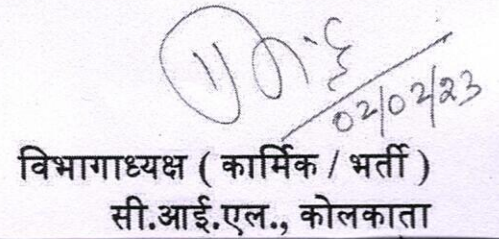 02/02/23
विभागाध्यक्ष ( कार्मिक / भर्ती )
सी.आई.एल., कोलकाता